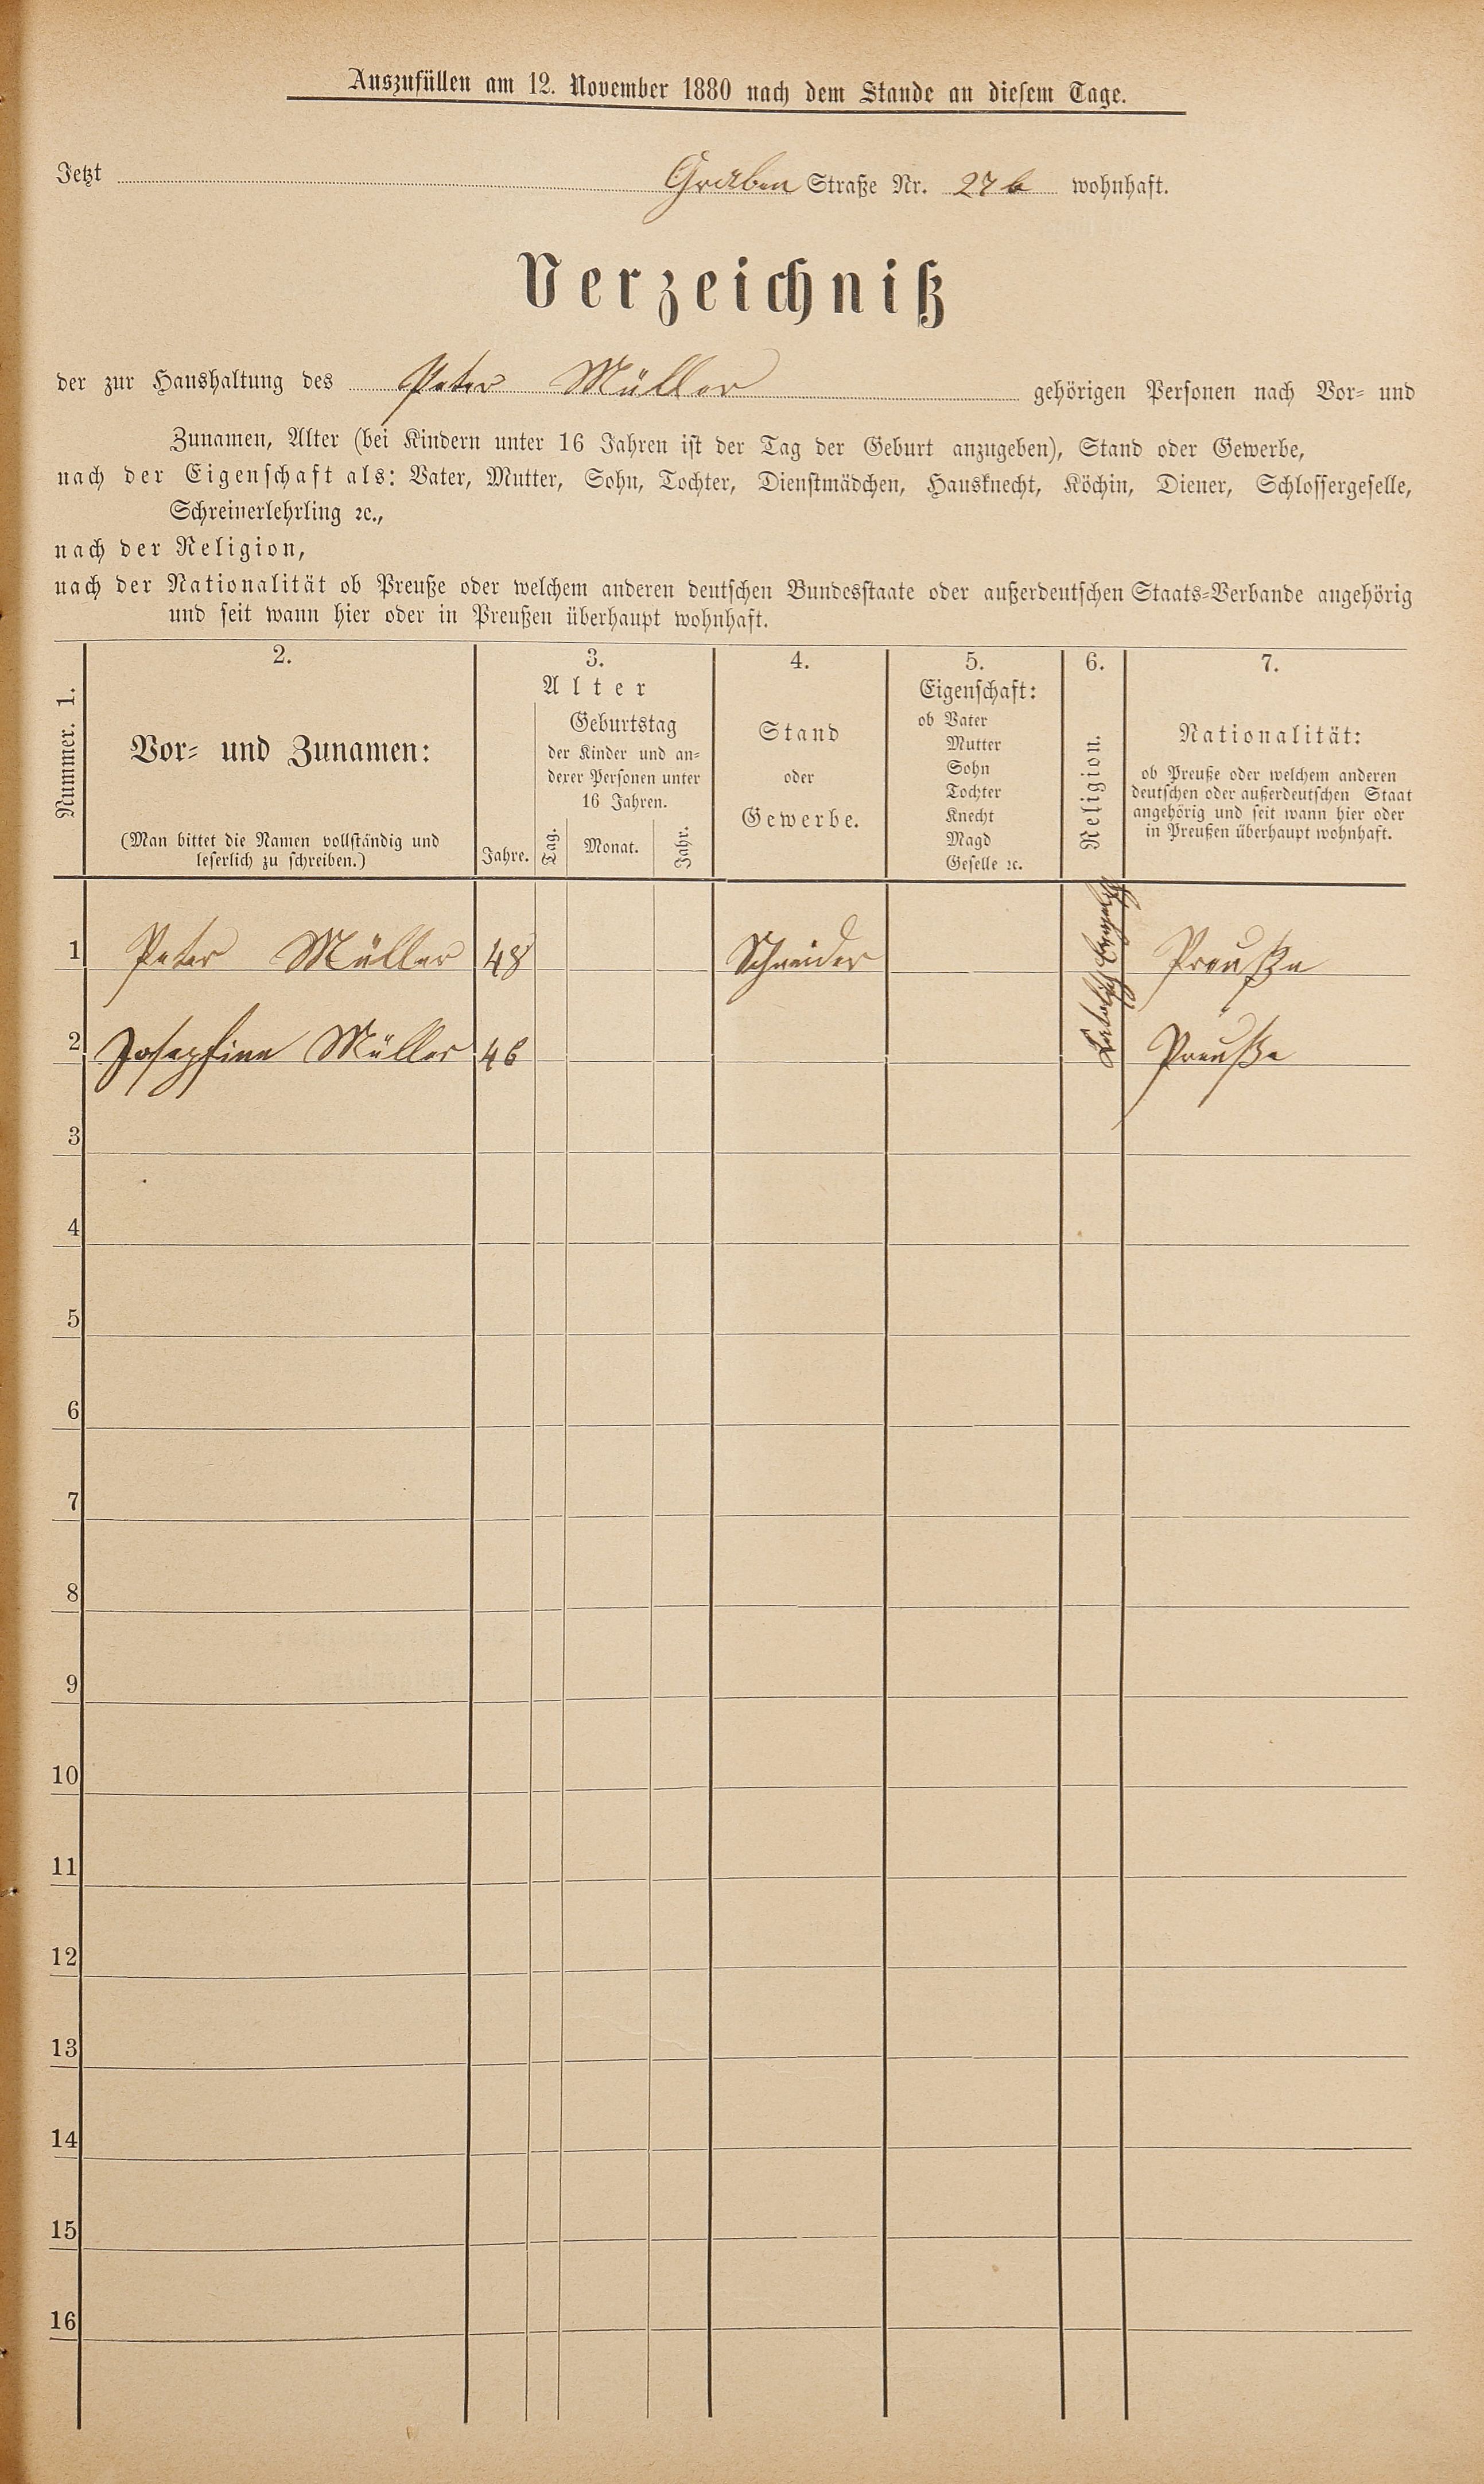 Auszufüllen am 12. November 1880 nach dem Stande an diesem Tage.
Jetzt Graben Straße Nr. 27 b wohnhaft.
Verzeichniß
der zur Haushaltung des Peter Müller gehörigen Personen nach Vor- und
Zunamen, Alter (bei Kindern unter 16 Jahren ist der Tag der Geburt anzugeben), Stand oder Gewerbe,
nach der Eigenschaft als: Vater, Mutter, Sohn, Tochter, Dienstmädchen, Hausknecht, Köchin, Diener, Schlossergeselle,
Schreinerlehrling ꝛc.,
nach der Religion,
nach der Nationalität ob Preuße oder welchem anderen deutschen Bundesstaate oder außerdeutschen Staats-Verbande angehörig
und seit wann hier oder in Preußen überhaupt wohnhaft.
Nummer. 1.
2.
Vor- und Zunamen:
(Man bittet die Namen vollständig und
leserlich zu schreiben.)
3.
Alter
Jahre.
Geburtstag
der Kinder und an-
derer Personen unter
16 Jahren.
Tag. Monat. Jahr.
4.
Stand
oder
Gewerbe.
5.
Eigenschaft:
ob Vater
Mutter
Sohn
Tochter
Knecht
Magd
Geselle ꝛc.
6.
Religion.
7.
Nationalität:
ob Preuße oder welchem anderen
deutschen oder außerdeutschen Staat
angehörig und seit wann hier oder
in Preußen überhaupt wohnhaft.
1 Peter Müller 48 Schneider Preuße
2 Josephine Müller 46 Preuße
3
4
5
6
7
8
9
10
11
12
13
14
15
16